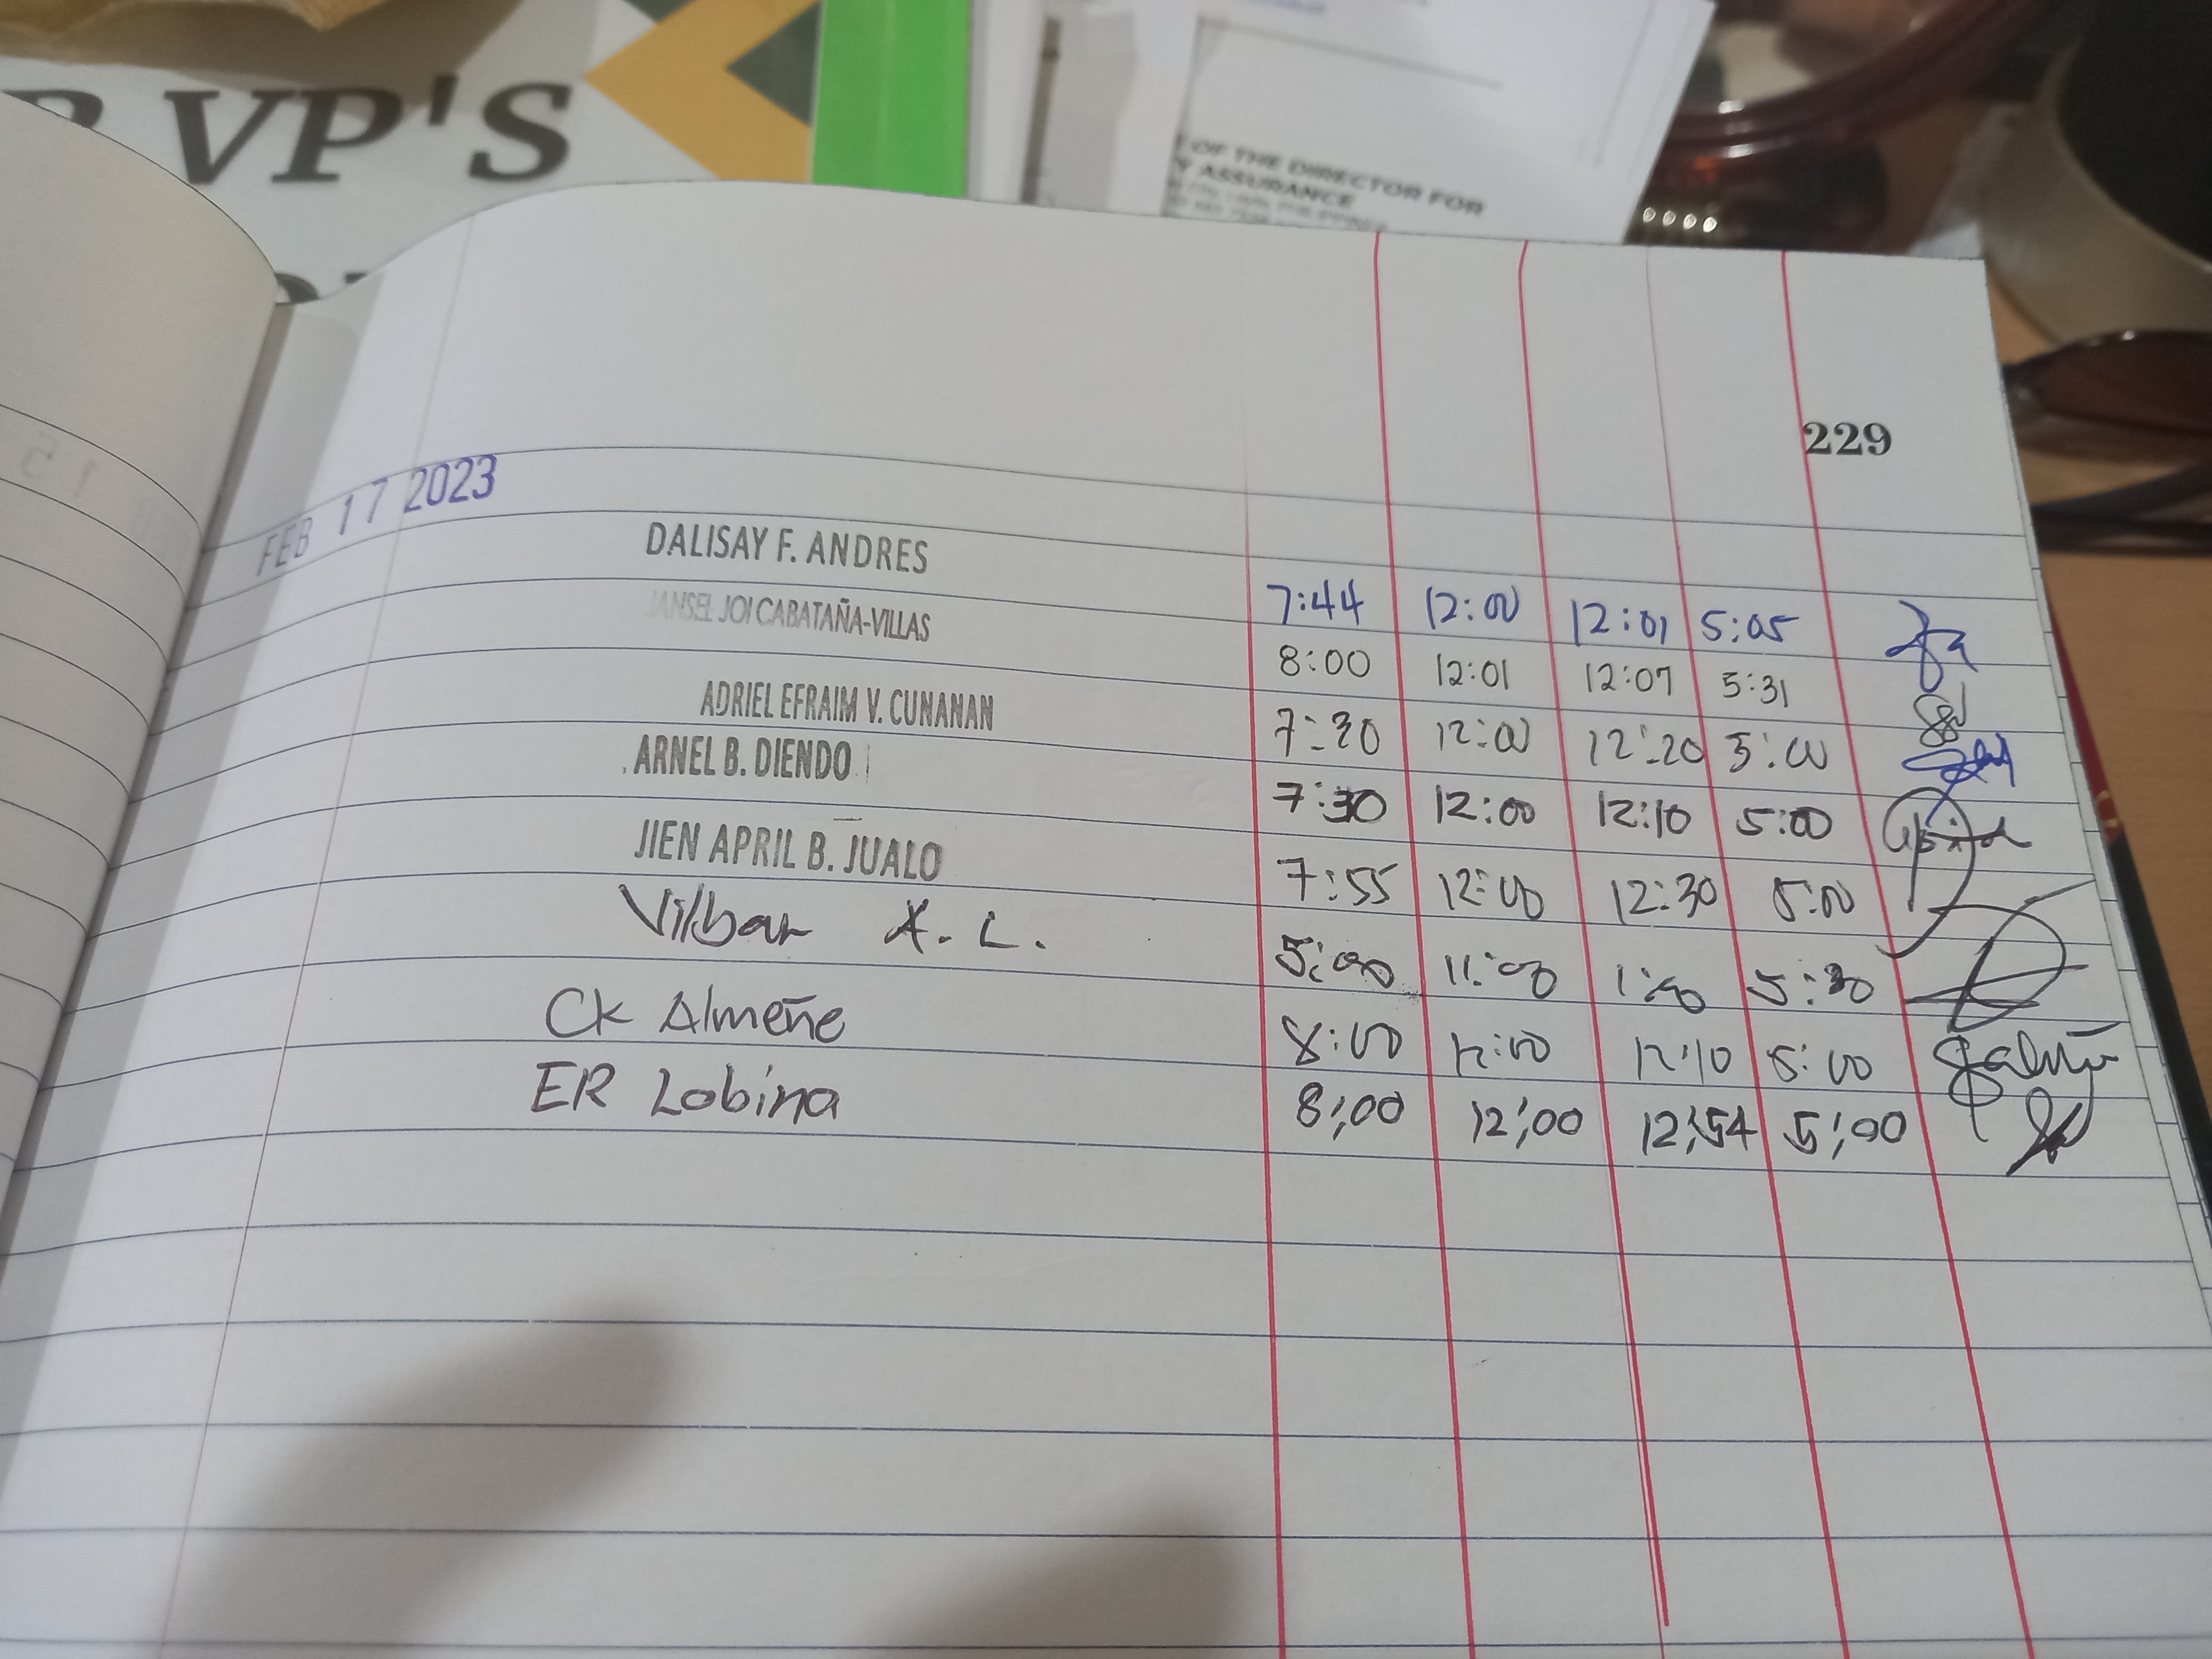 VP'S
OF THE DIRECTOR FOR
ASSURANCE
229
FEB 17 2023
DALISAY F. ANDRES 7:44 12:00 12:01 5:05
JANSEL JOI CABATAÑA-VILLAS 8:00 12:01 12:07 5:31
ADRIEL EFRAIM V. CUNANAN 7:30 12:00 12:20 5:00
ARNEL B. DIENDO 7:30 12:00 12:10 5:00
JIEN APRIL B. JUALO 7:55 12:00 12:30 5:00
Vilbar A. L. 5:00 11:00 1:00 5:30
Ck Almeñe 8:00 12:00 12:10 5:00
ER Lobina 8:00 12:00 12:54 5:00